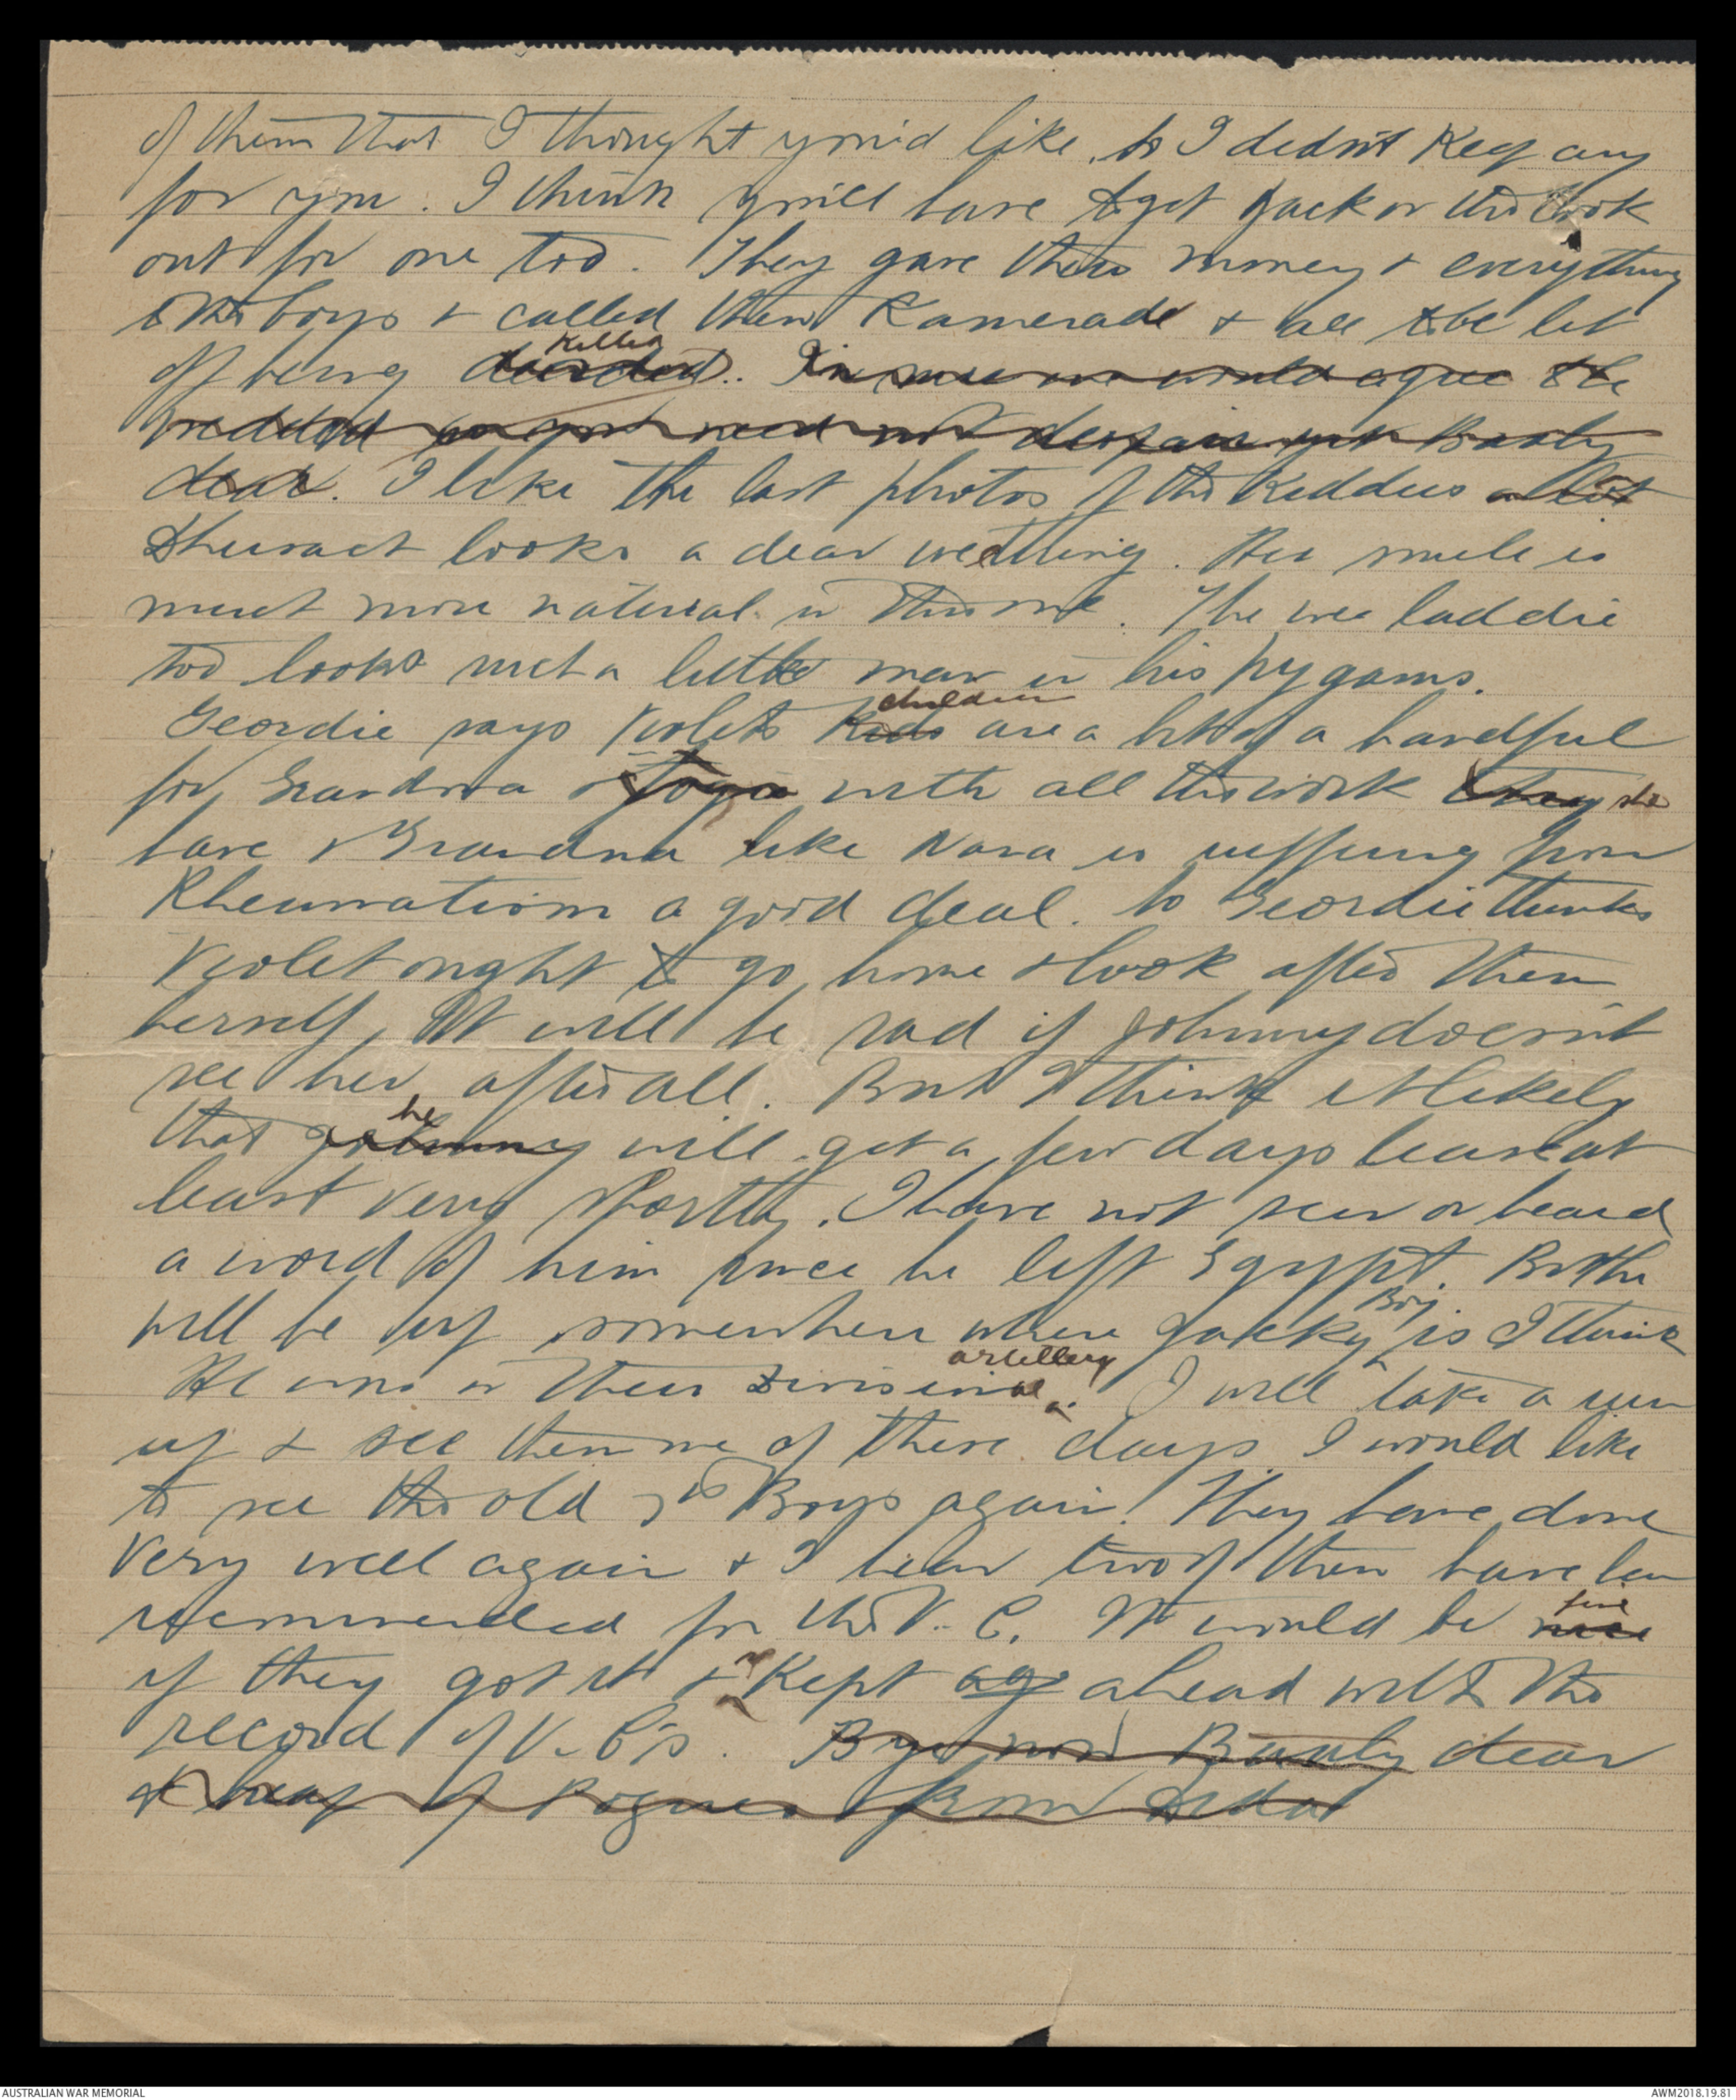 of them that I thought you'd like, so I didn't keep any
for you. I think you'll have to get Jack on the look
out for one too. They gave their money & everything
to the boys & called them Kamerade & all to be let
off being killed. I'm sure we would agree to be
wedded so you need not despair yet Bawly
dear. I like the last photos of the Kiddies a lot
looks a dear wee thing. Her smile is
much more natural in this one. The wee laddie
too looks such a little man in his pygams.
Geordie says Violets kids children are a bit of a handful
for Grandma & with all the work they she
have & Grandma like Nana is suffering from
Rheumatism a good deal. So Geordie thinks
Violet ought to go home & look after them
herself, It will be sad if Johnny doesn't
see her after all. But I think it likely
that Johnny he will get a few days leave at
least very shortly. I have not seen or heard
a word of him since he left Egypt. But he
will be up somewhere where Jacky Boy is I think
He was in their Divisional artillery. I will take a run
up & see them one of these days I would like
to see the old Boys again. They have done
very well again & I hear two of them have been
recommended for the V. C. It would be nice fine
if they got it & kept ago ahead with the
record of V. C's. Bye now Bawly dear
& heap of Pogues from Dida